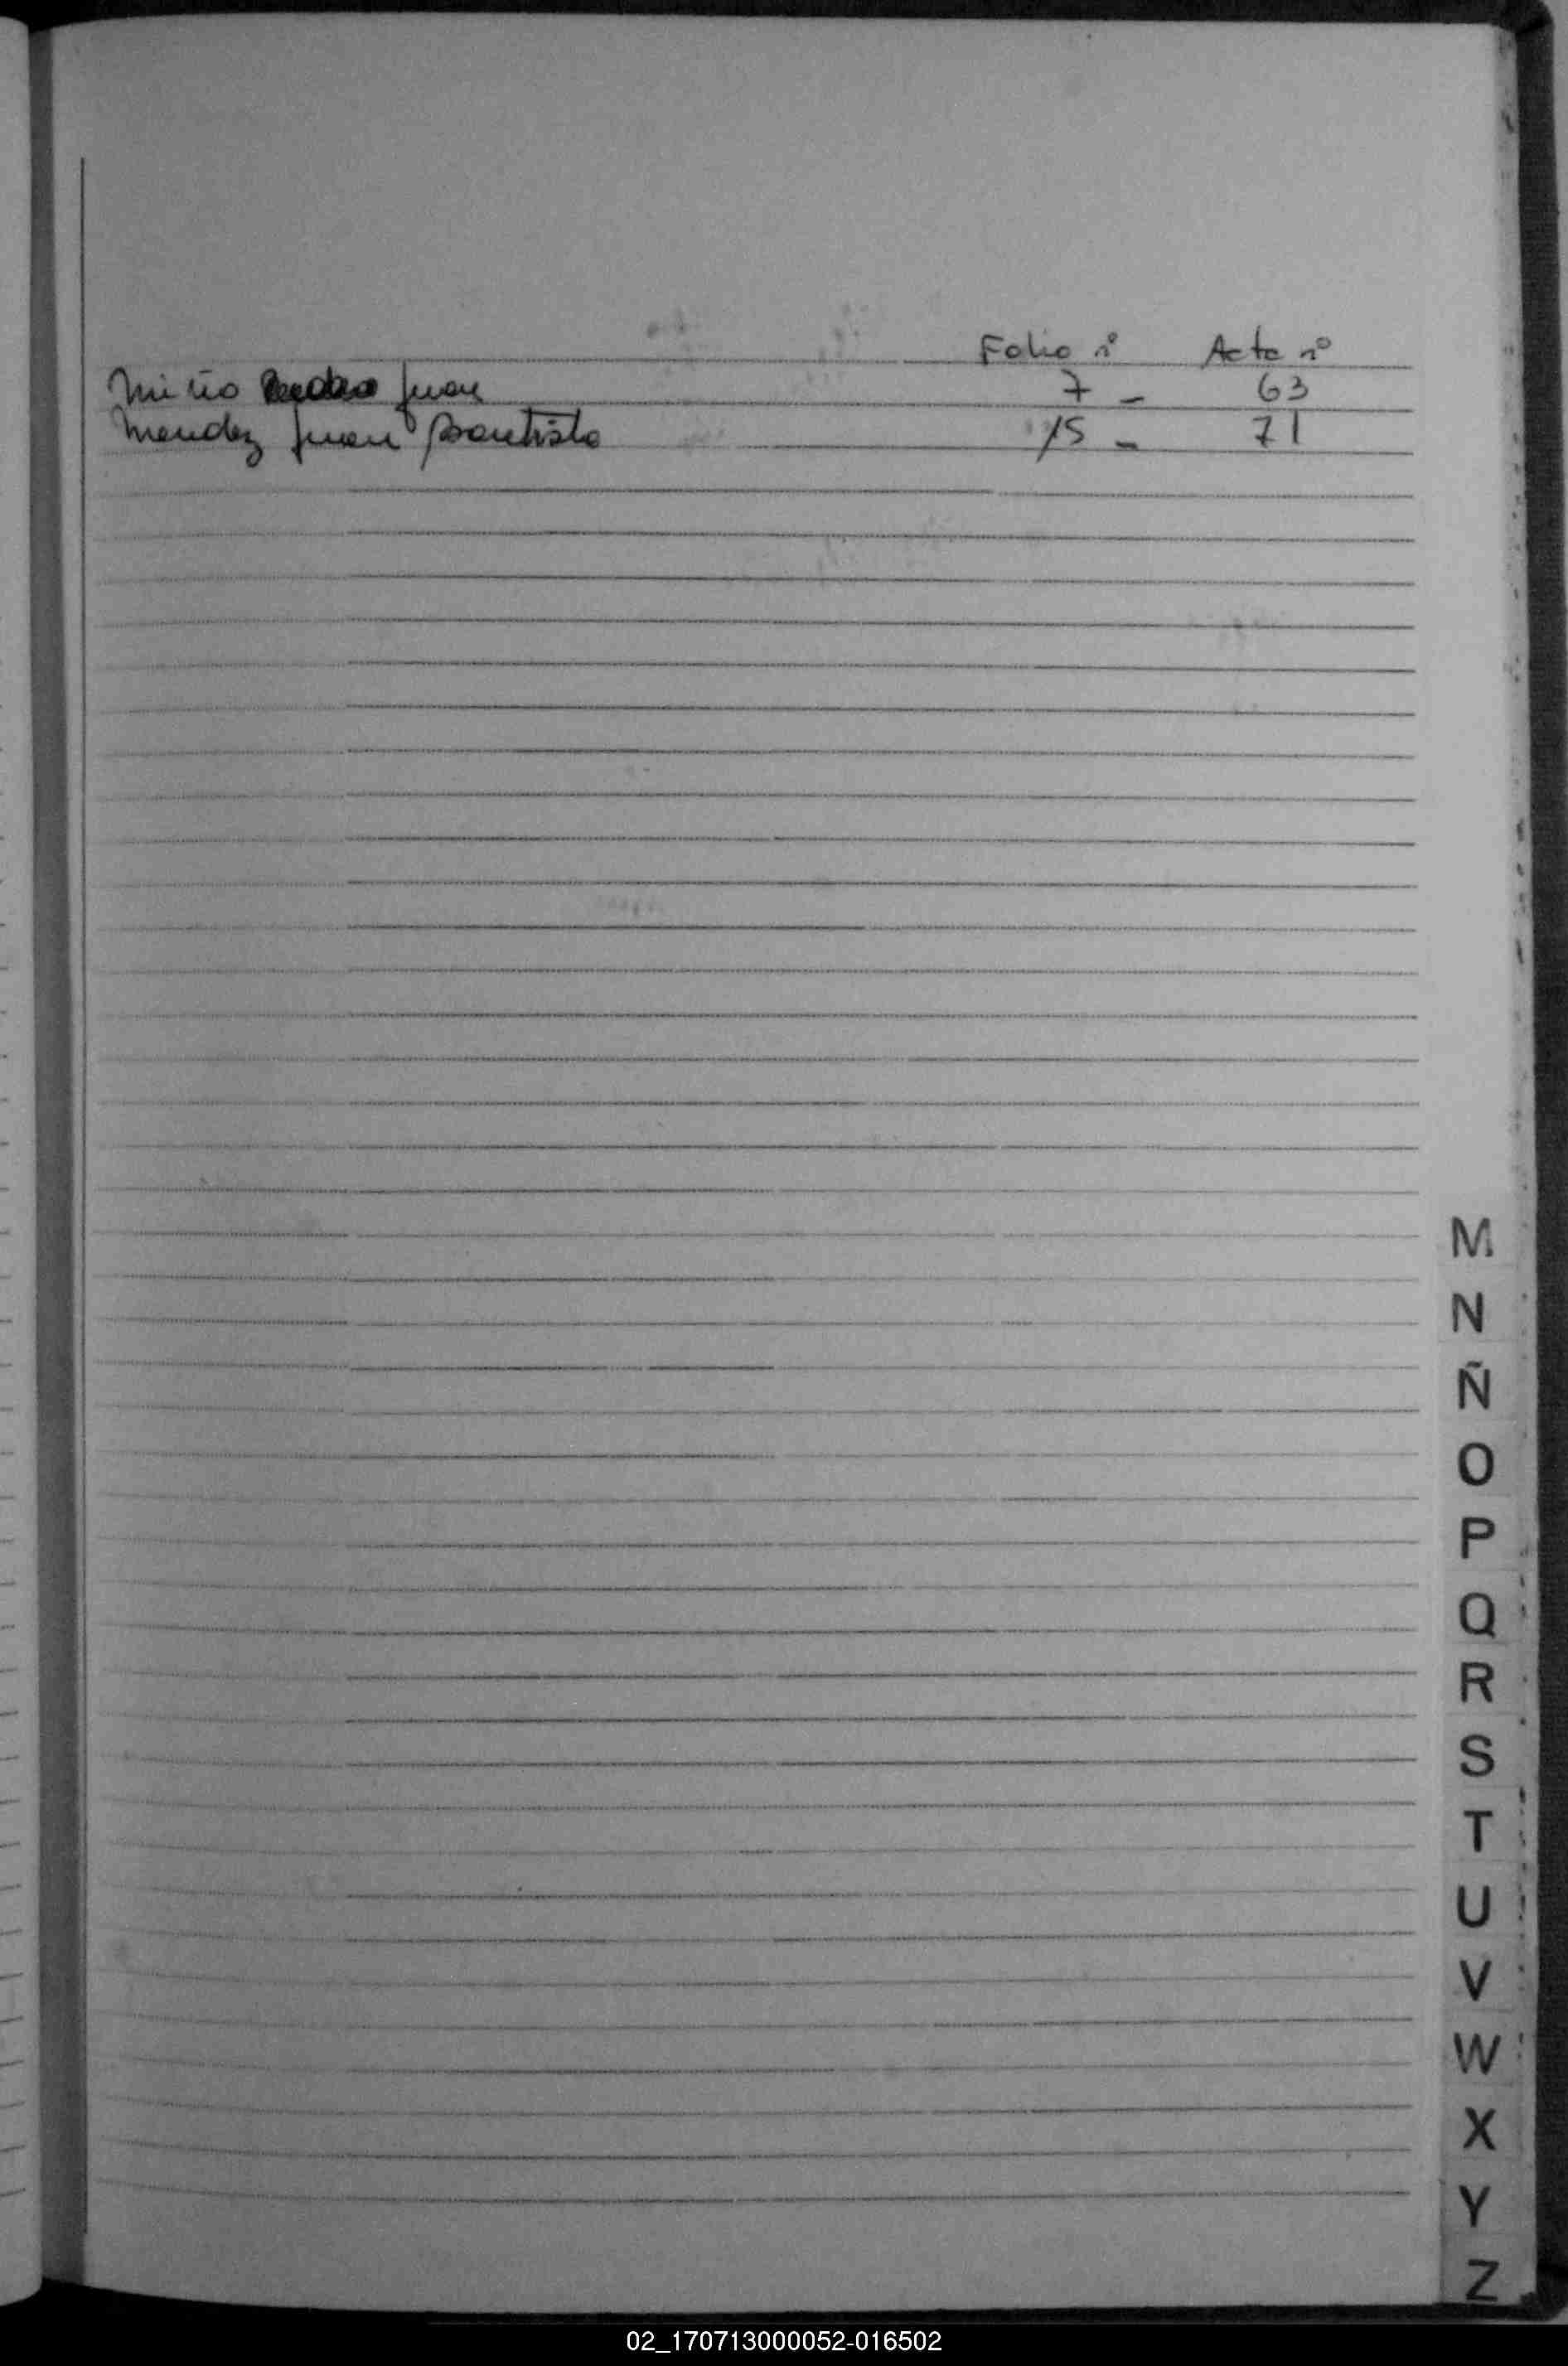 Folio nº Acta nº
Miño Juan 7 - 63
Mendez Juan Bautista 15 - 71
M
N
Ñ
O
P
Q
R
S
T
U
V
W
X
Y
Z
02_170713000052-016502